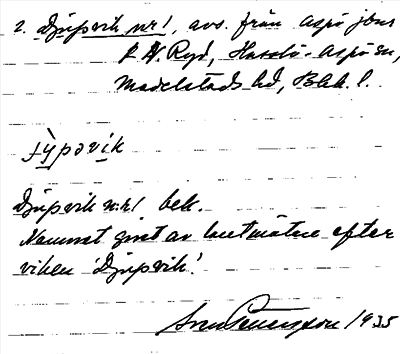 2. Djupvik nr 1, avs. från Aspö jbnr
R.H. Ryd, Hasslö-Aspö sn,
Medelstads hd, Blek. l.
jỳpəvik
Djupvik nr 1 bek.
Namnet givet av lantmätne efter
viken 'Djupvik'.
Sven Benson 1935